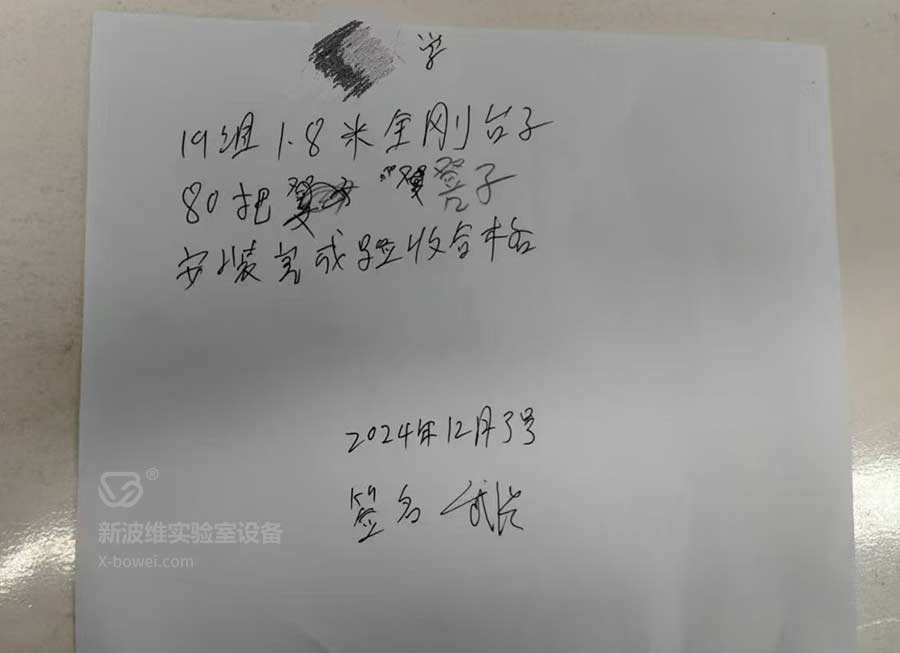 学
19组1.8米全刚台子
80把 凳子
安装完成验收合格
2024年12月3号
签名
新波维实验室设备
X-bowei.com